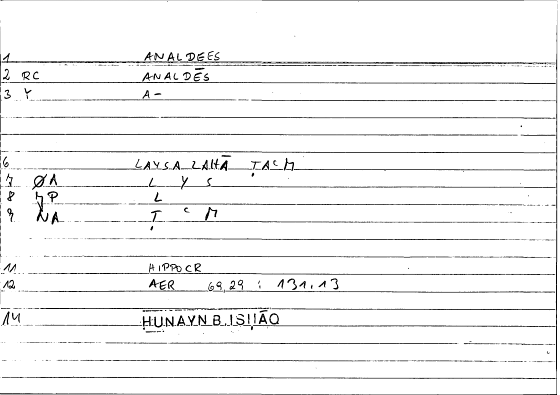 1 ANALDEES
2 RC ANALDĒS
3 Y A-
6 LAYSA LAHĀ ṬAʿM
7 ØA L Y S
8 ηP L
9 NA Ṭ ʿ M
11 HIPPOCR
12 AER 69,29 : 131,13
14 ḤUNAYN B. ISḤĀQ